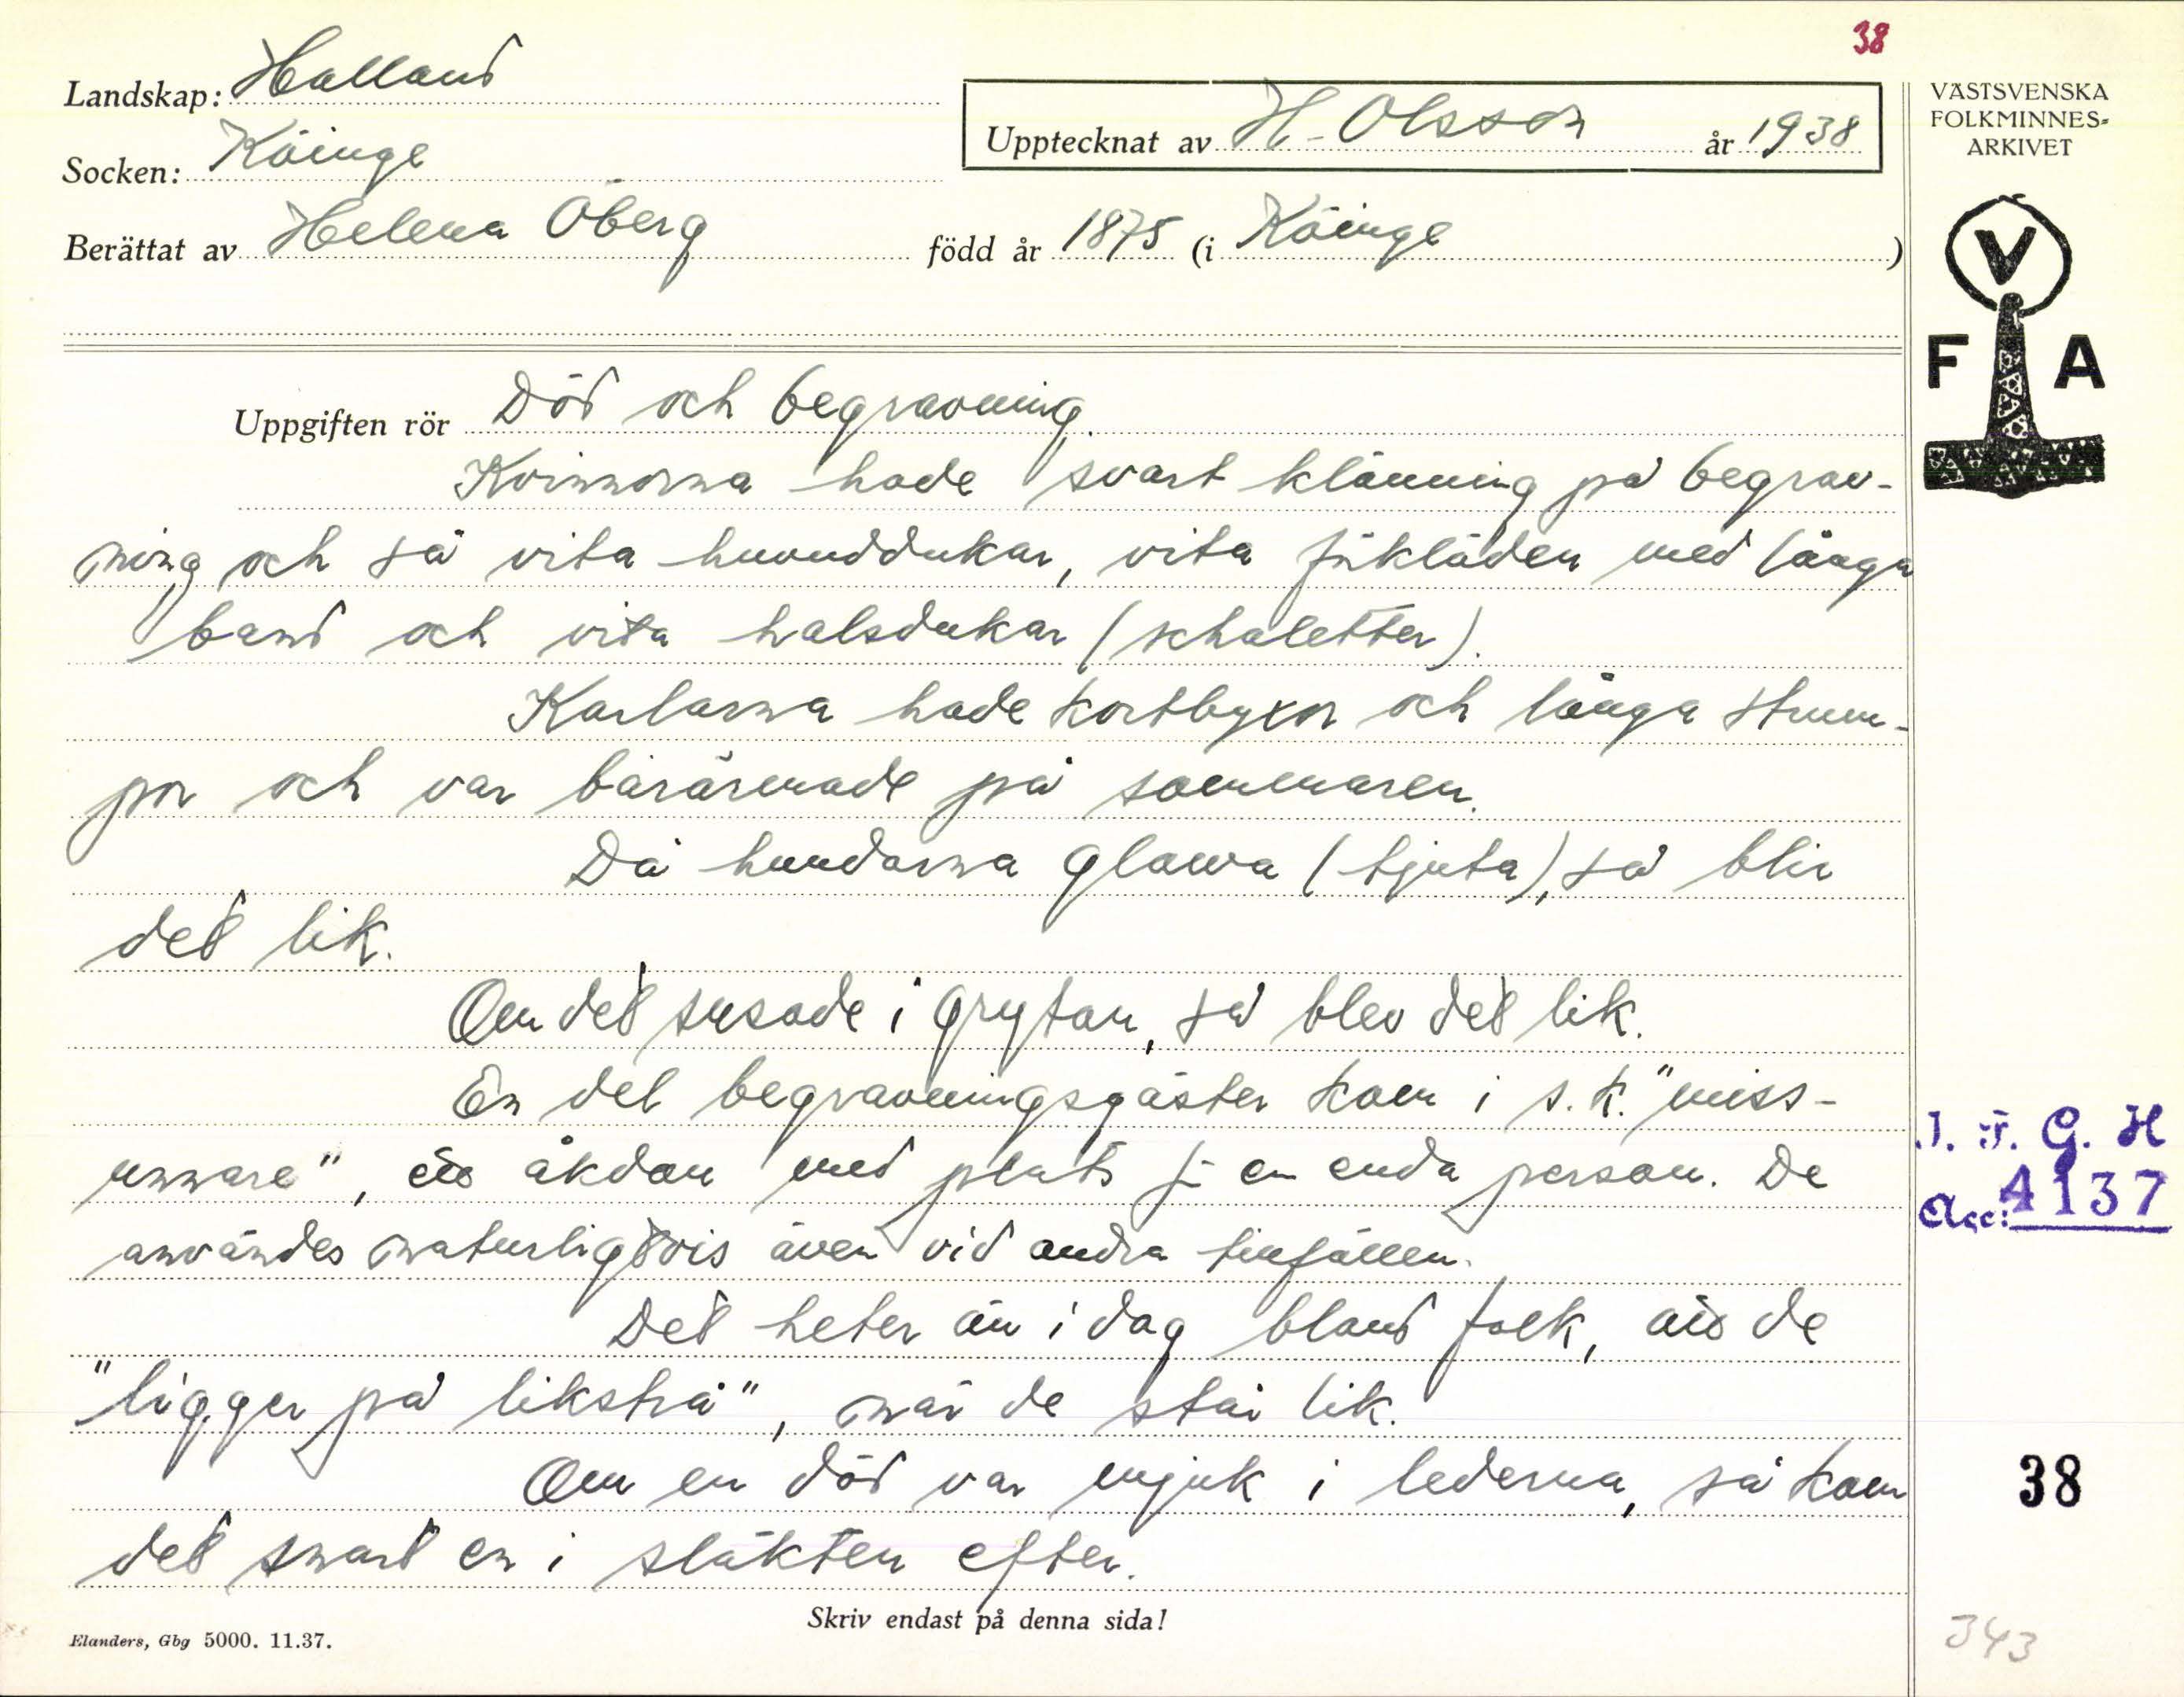 38
Landskap: Halland
Upptecknat av H. Olsson år 1938
VÄSTSVENSKA
FOLKMINNES-
ARKIVET
Socken: Köinge
Berättat av Helena Öberg född år 1875 (i Köinge)
V
F A
Uppgiften rör Död och begravning.
Kvinnorna hade svart klänning på begrav-
ning och så vita huvuddukar, vita förkläden med långa
band och vita halsdukar (schaletter).
Karlarna hade kortbyxor och långa strum-
por och var barärmade på sommaren.
Då hundarna glawa (tjuta), så blir
det lik.
Om det susade i grytan, så blev det lik.
En del begravningsgäster kom i s.k. "miss-
unnare", åkdon med plats för en enda person. De
användes naturligtvis även vid andra tillfällen.
Det heter än i dag bland folk, att de
"ligger på likstrå", när de står lik.
Om en död var mjuk i lederna, så kom
det snart en i släkten efter.
I. F. G. H
Acc: 4137
38
Skriv endast på denna sida!
Elanders, Gbg 5000. 11.37.
343